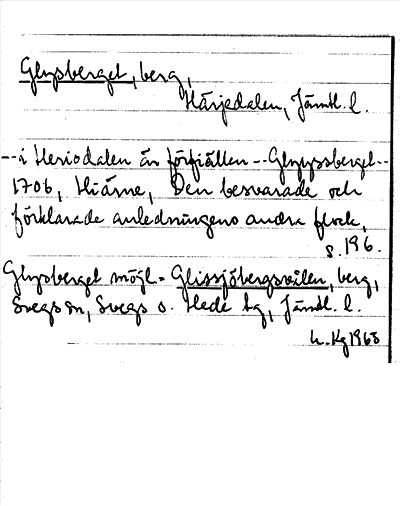 Glysberget, berg,
Härjedalen, Jämtl. l.
-- i Heriodalen än förfiällen -- Glyyssberget --
1706, Hiärne, Den besvarade och
förklarade anledningens andra flock,
s. 196.
Glysberget mögl. = Glissjöbergsvålen, berg,
Svegs sn, Svegs o. Hede tg, Jämtl. l.
h. Kg 1968